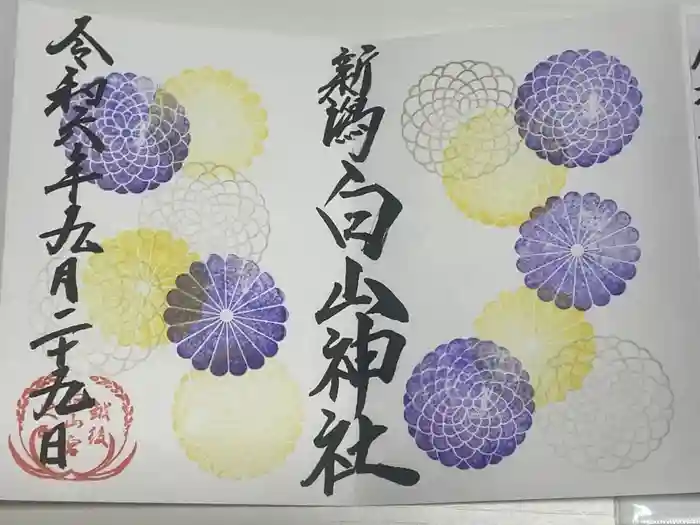 新潟白山神社
令和六年九月二十九日
越後